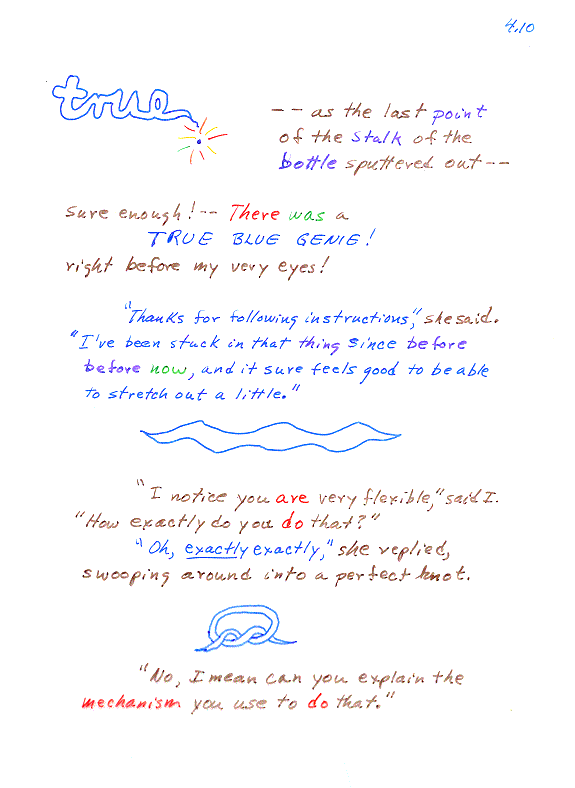 4.10
true
-- as the last point
of the stalk of the
bottle sputtered out --
Sure enough! -- There was a
TRUE BLUE GENIE!
right before my very eyes!
"Thanks for following instructions," she said.
"I've been stuck in that thing since before
before now, and it sure feels good to be able
to stretch out a little."
"I notice you are very flexible," said I.
"How exactly do you do that?"
"Oh, exactly exactly," she replied,
swooping around into a perfect knot.
"No, I mean can you explain the
mechanism you use to do that."